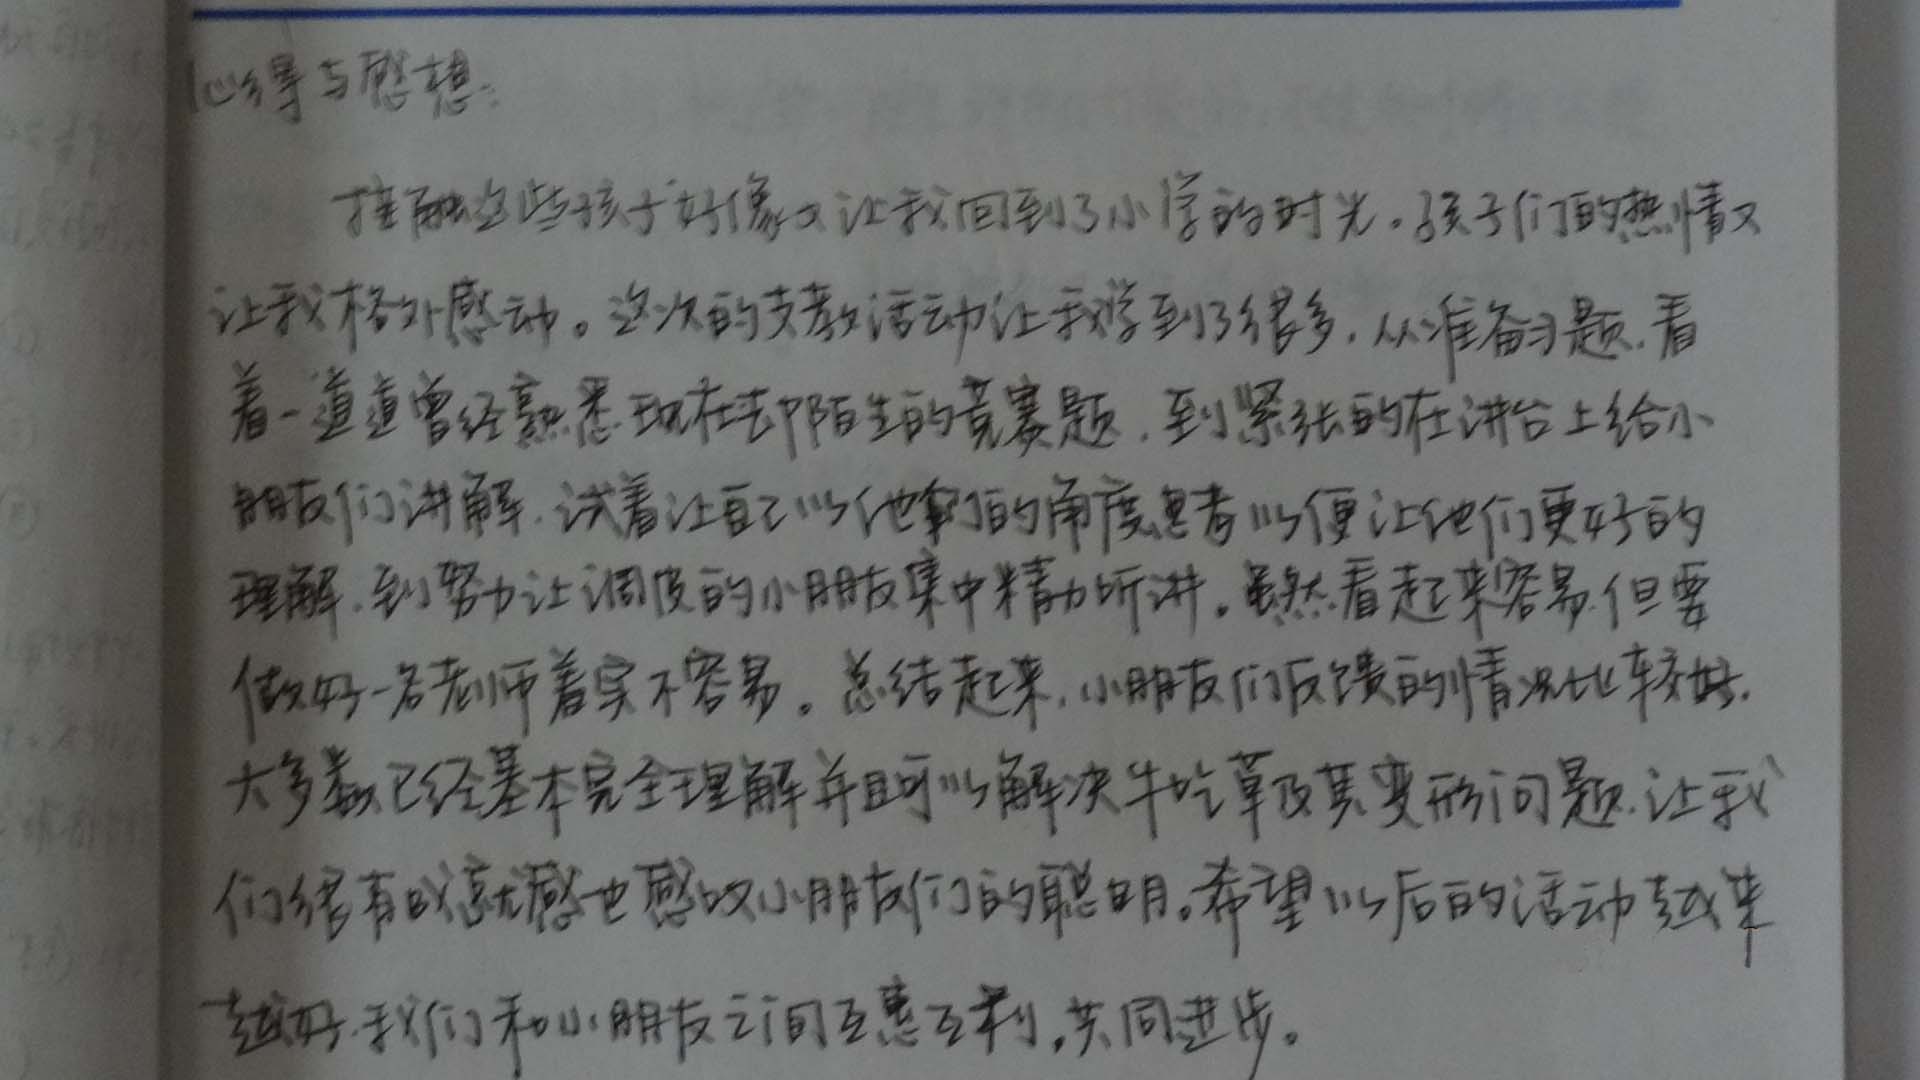 心得与感想:
接触这些孩子好像又让我回到了小学的时光。孩子们的热情又
让我格外感动。这次的支教活动让我学到了很多,从准备习题,看
着一道道曾经熟悉现在却陌生的竞赛题,到紧张的在讲台上给小
朋友们讲解,试着让自己以他们的角度思考以便让他们更好的
理解,到努力让调皮的小朋友集中精力听讲。虽然看起来容易,但要
做好一名老师着实不容易。总结起来,小朋友们反馈的情况比较好,
大多数已经基本完全理解并且可以解决牛吃草及其变形问题,让我
们很有成就感也感叹小朋友们的聪明。希望以后的活动越来
越好,我们和小朋友之间互惠互利,共同进步。